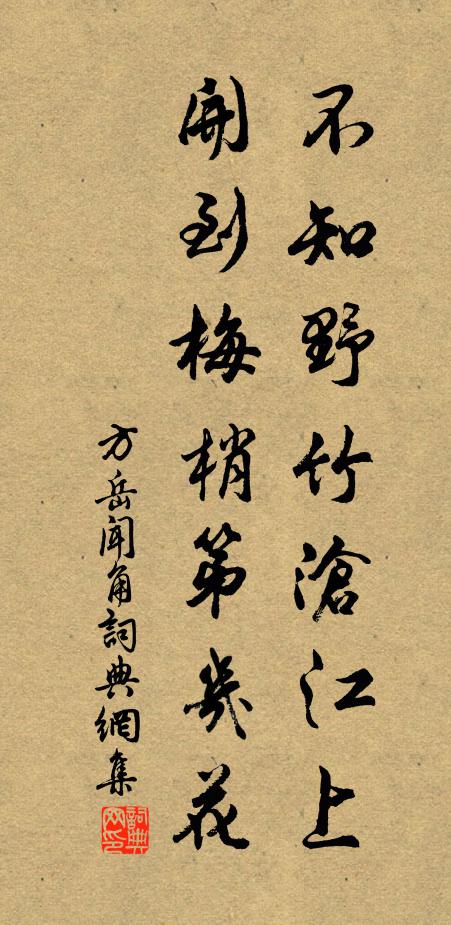 不知野竹滄江上
開到梅梢第幾花
方岳聞角詞典網集
詞典网印